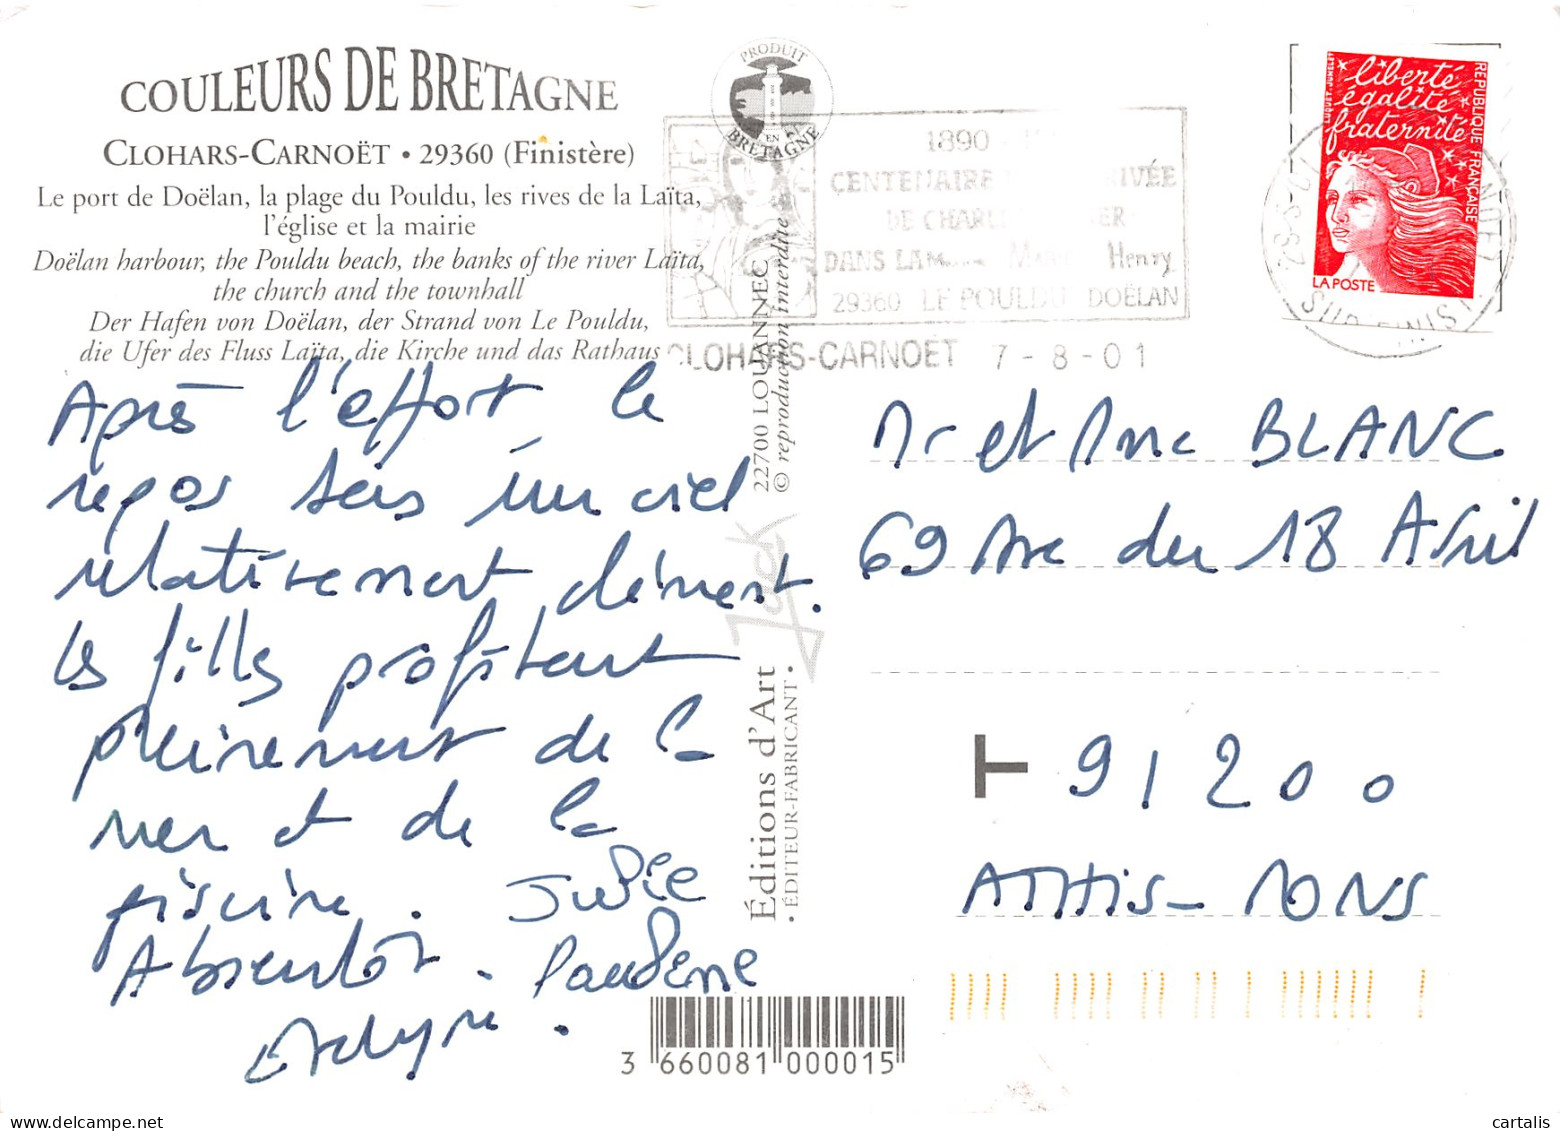 COULEURS DE BRETAGNE
CLOHARS-CARNOËT • 29360 (Finistère)
Le port de Doëlan, la plage du Pouldu, les rives de la Laïta,
l'église et la mairie
Doëlan harbour, the Pouldu beach, the banks of the river Laïta,
the church and the townhall
Der Hafen von Doëlan, der Strand von Le Pouldu,
die Ufer des Fluss Laïta, die Kirche und das Rathaus
Après l'effort le
repos sous un ciel
relativement clément.
Les filles profitent
pleinement de la
mer et de la
piscine.
A bientôt.
Julie
PRODUIT
EN
BRETAGNE
1890
CENTENAIRE RIVÉE
DE
DANS LA Henry
29360 LE POULDU DOËLAN
CLOHARS-CARNOËT 7-8-01
22700 LOUANNEC
© reproduction interdite
Jack
Éditions d'Art
• ÉDITEUR-FABRICANT •
3 660081 000015
liberté
égalité
fraternité
REPUBLIQUE FRANÇAISE
LA POSTE
Mr et Mme BLANC
69 rue du 18 Avril
T 91200
ATHIS-MONS
cartalis